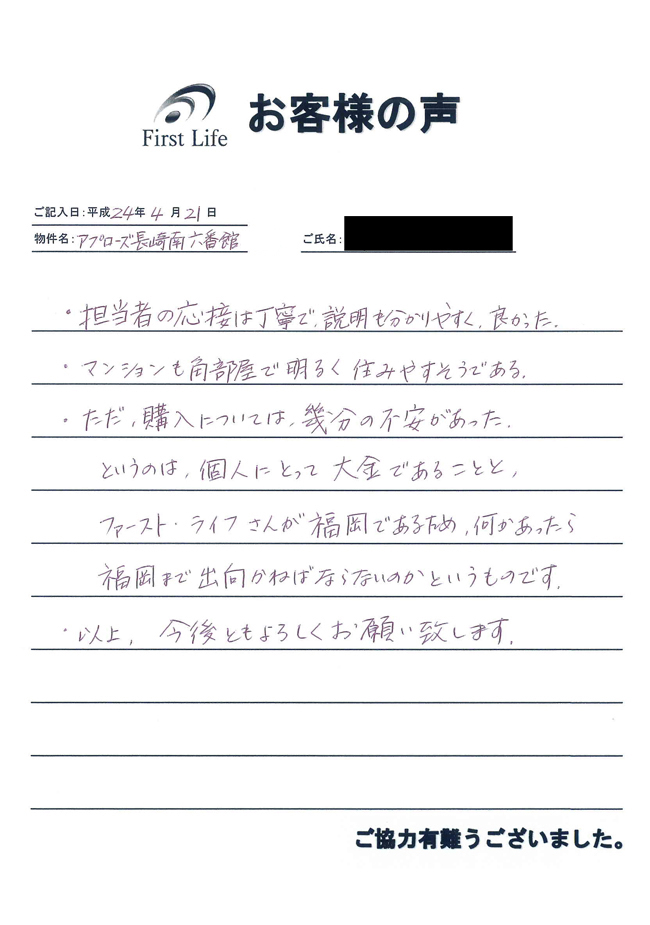 First Life
お客様の声
ご記入日:平成24年4月21日
物件名:アプローズ長崎南六番館
ご氏名:
・担当者の応接は丁寧で、説明も分かりやすく、良かった。
・マンションも角部屋で明るく住みやすそうである。
・ただ、購入については、幾分の不安があった。
というのは、個人にとって大金であることと、
ファースト・ライフさんが福岡であるため、何かあったら
福岡まで出向かねばならないのかというものです。
・以上、今後ともよろしくお願い致します。
ご協力有難うございました。